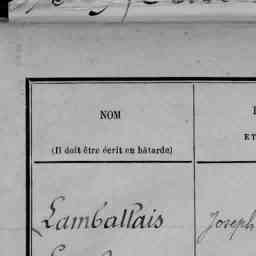 NOM
(Il doit être écrit en bâtarde)
ET
Lamballais Joseph